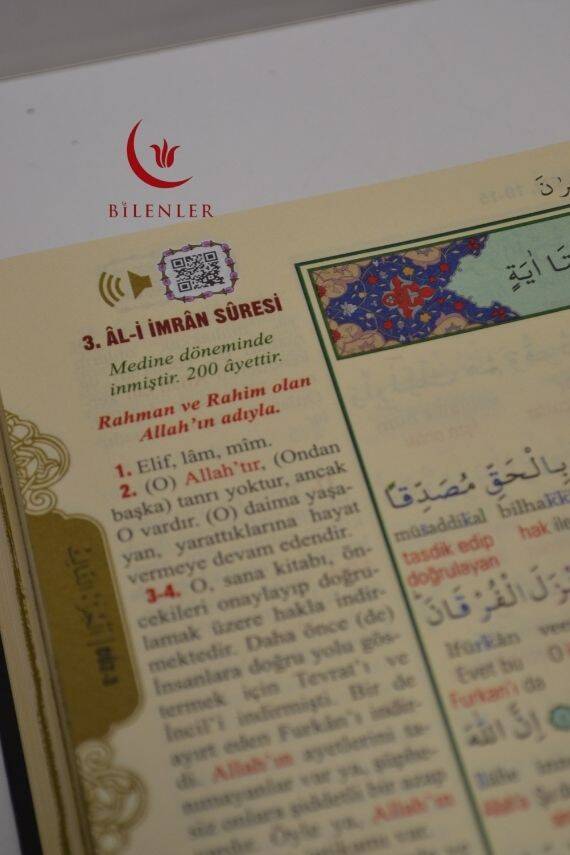 BİLENLER
3. ÂL-İ İMRÂN SÛRESİ
Medine döneminde
inmiştir. 200 âyettir.
Rahman ve Rahim olan
Allah'ın adıyla.
1. Elif, lâm, mîm.
2. (O) Allah'tır, (Ondan
başka) tanrı yoktur, ancak
O vardır. (O) daima yaşa-
yan, yarattıklarına hayat
vermeye devam edendir.
3-4. O, sana kitabı, ön-
cekileri onaylayıp doğru-
lamak üzere hakla indir-
mektedir. Daha önce (de)
İnsanlara doğru yolu gös-
termek için Tevrat'ı ve
İncil'i indirmişti. Bir de
ayırt eden Furkân'ı indir-
di. Allah'ın ayetlerini ta-
nımayanlar var ya, şüphe-
siz onlara şiddetli bir azap
vardır. Öyle ya, Allah'ın
اٰيَةٍ
بِالْحَقِّ مُصَدِّقًا
müsaddikal bilhakk
tasdik edip hak ile
doğrulayan
الْفُرْقَانَ
lfürkân
Evet bu
Furkan'ı da
اِنَّ اللّٰهَ